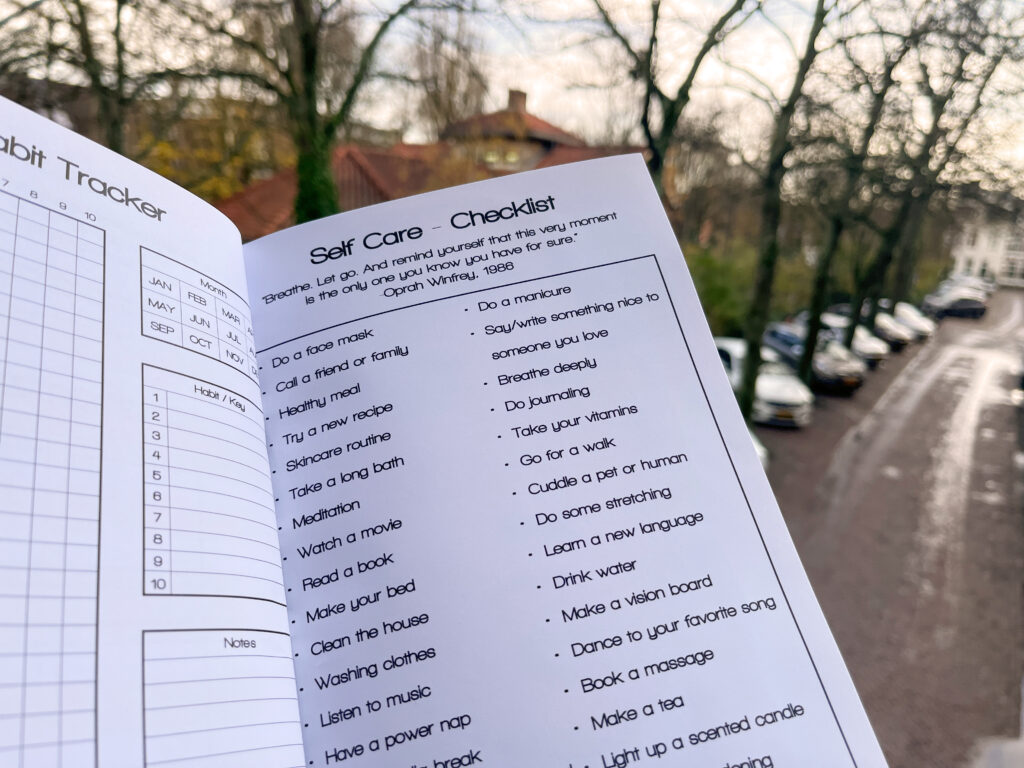 Tracker
7 8 9 10
Month
JAN FEB MAR
MAY JUN JUL
SEP OCT NOV
Habit / Key
1
2
3
4
5
6
7
8
9
10
Notes
Self Care - Checklist
"Breathe. Let go. And remind yourself that this very moment
is the only one you know you have for sure."
Oprah Winfrey, 1986
• Do a face mask
• Call a friend or family
• Healthy meal
• Try a new recipe
• Skincare routine
• Take a long bath
• Meditation
• Watch a movie
• Read a book
• Make your bed
• Clean the house
• Washing clothes
• Listen to music
• Have a power nap
break
• Do a manicure
• Say/write something nice to
someone you love
• Breathe deeply
• Do journaling
• Take your vitamins
• Go for a walk
• Cuddle a pet or human
• Do some stretching
• Learn a new language
• Drink water
• Make a vision board
• Dance to your favorite song
• Book a massage
• Make a tea
• Light up a scented candle